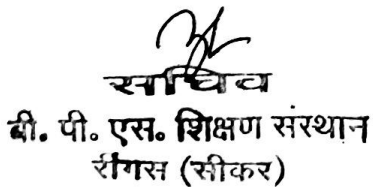 सचिव
बी. पी. एस. शिक्षण संस्थान
रींगस (सीकर)